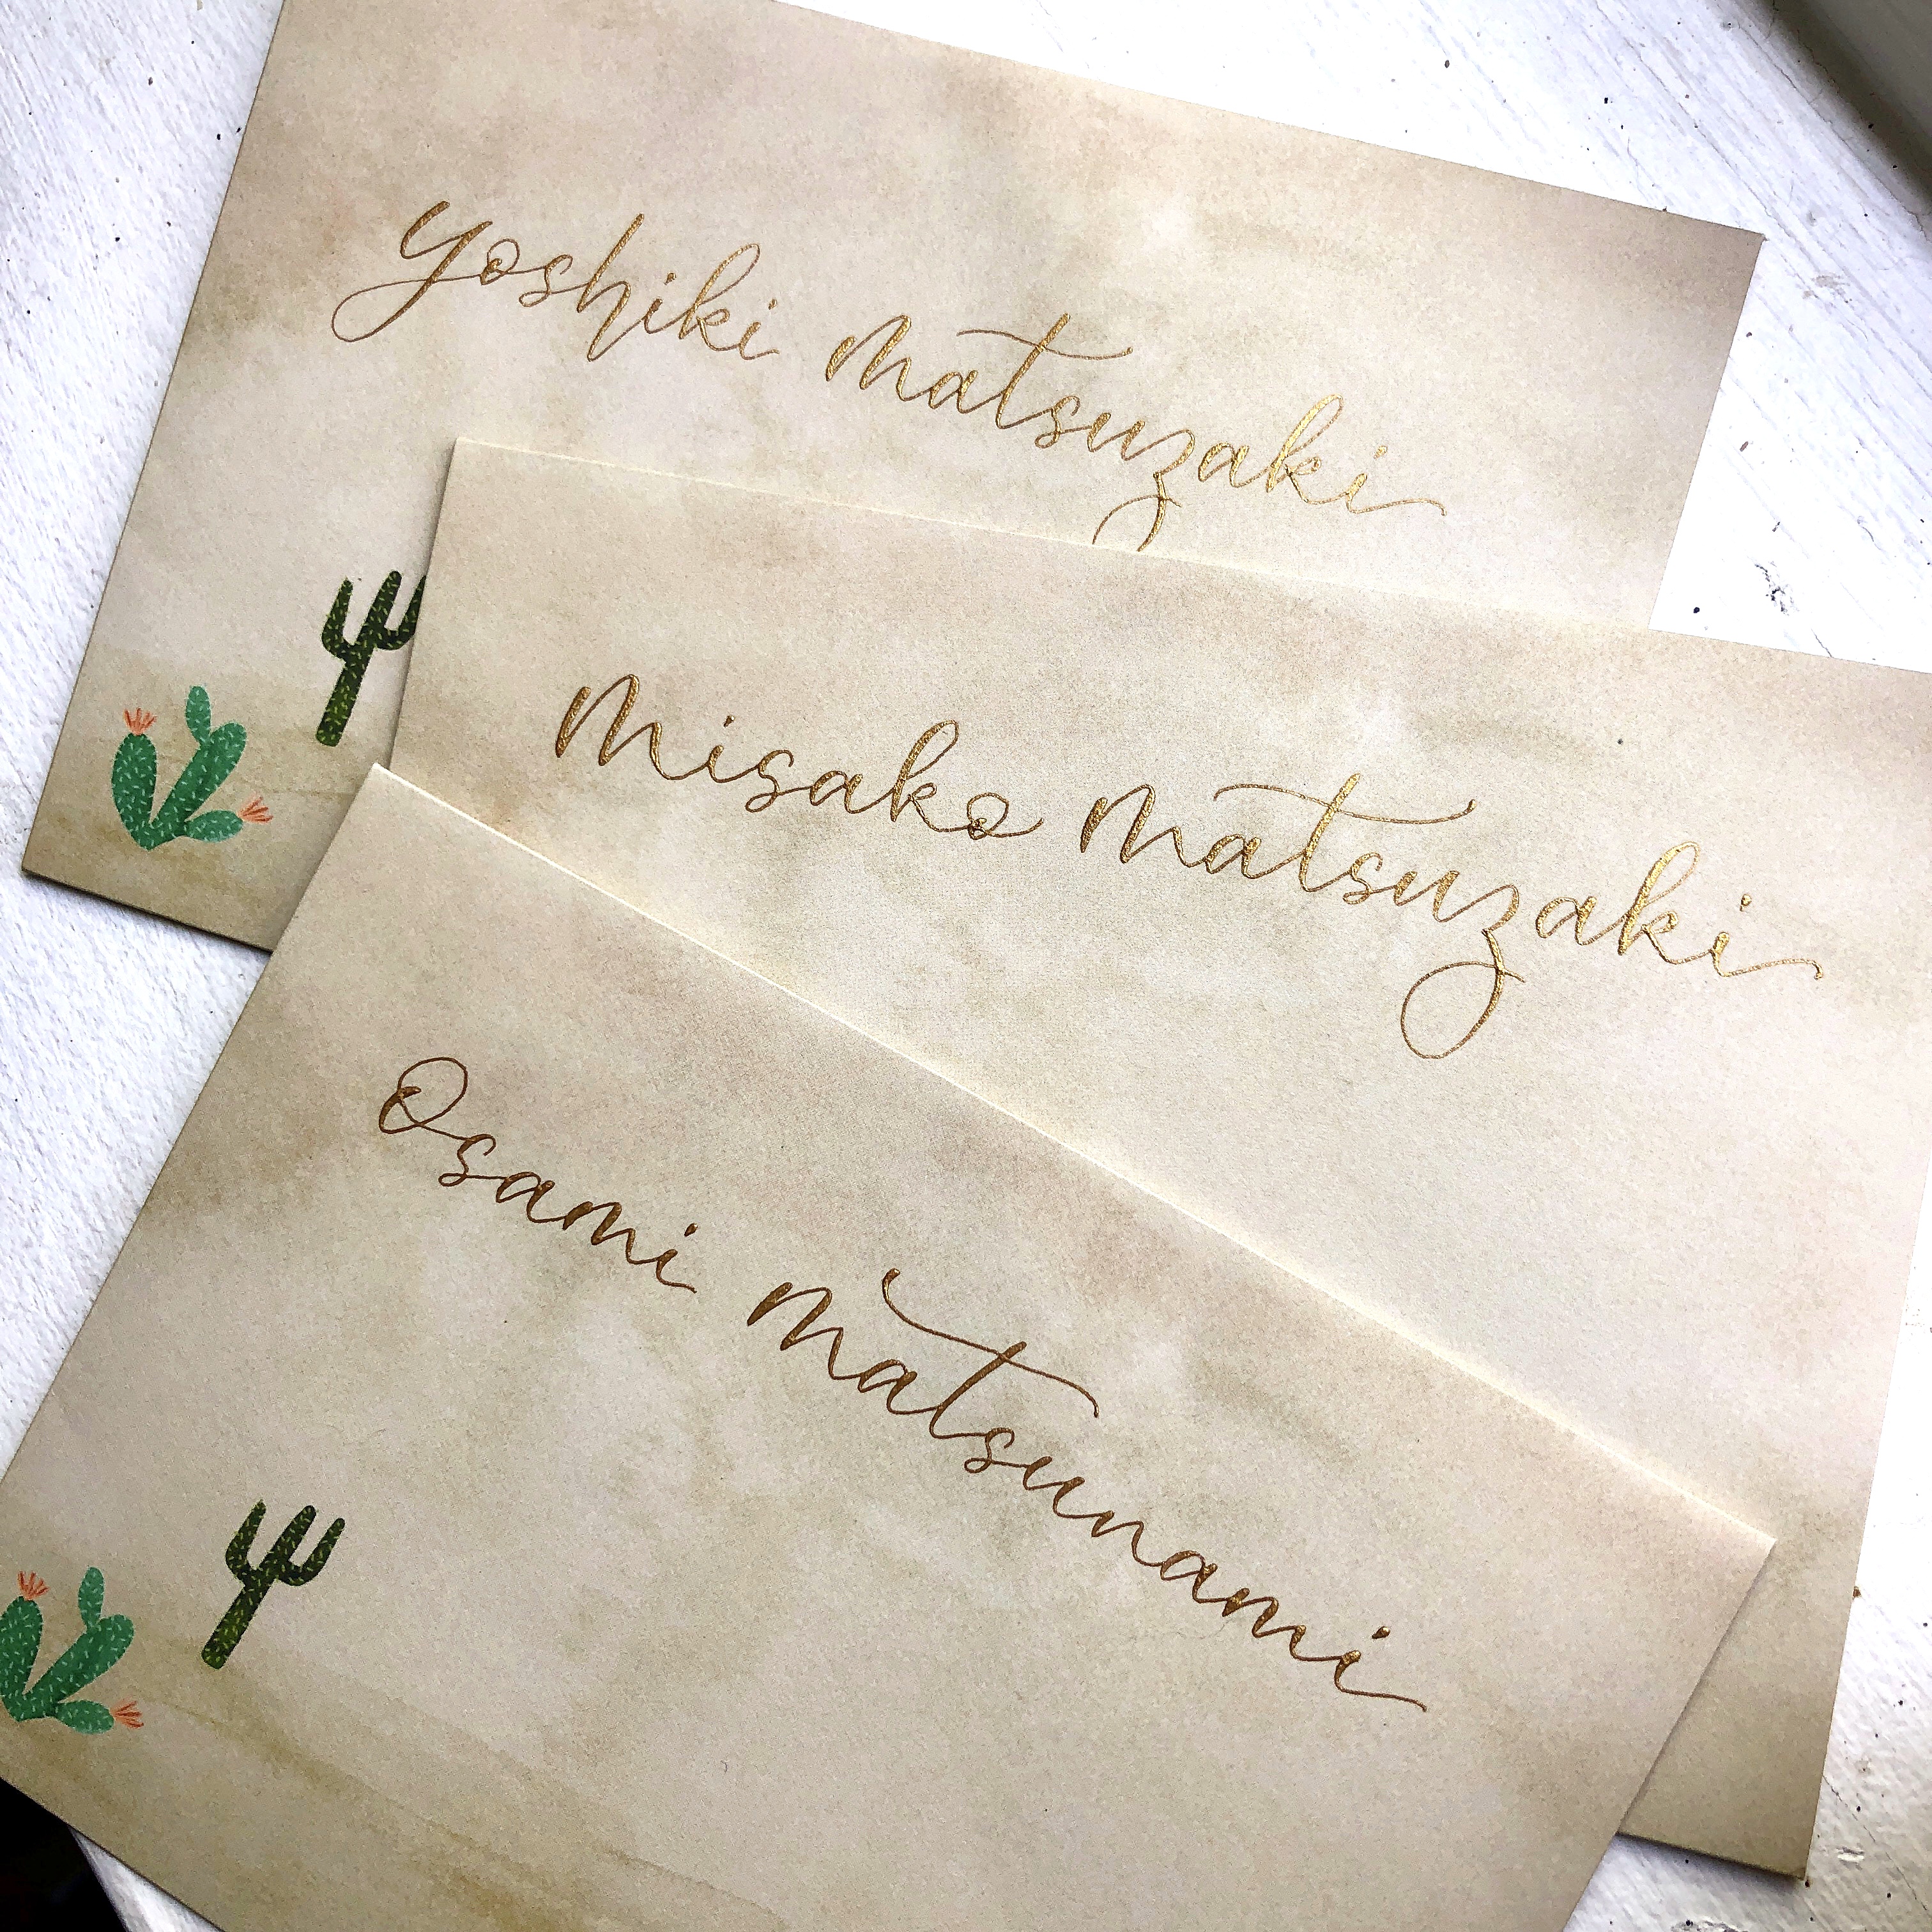 Yoshiki Matsuzaki
Misako Matsuzaki
Osami Matsunami